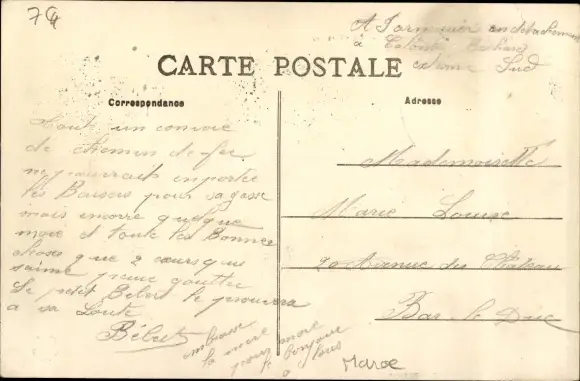 A Farmnier en détachement
à Colomb Bechard
extreme Sud
CARTE POSTALE
Correspondance
Adresse
Tout un convoie
de chemin de fer
ne pourrait emporter
les Baisers pour sa gosse
mais encore quelque
more et toute les Bonnes
chose que 2 cœurs qui
s'aime peuve goutter
le petit Bébert le prouvera
a sa Loute
Bébert
embrasse
la mère
pour more
bonjour
a tous
Mademoiselle
Marie Louise
20 Avenue du Château
Bar-le-Duc
Maroc